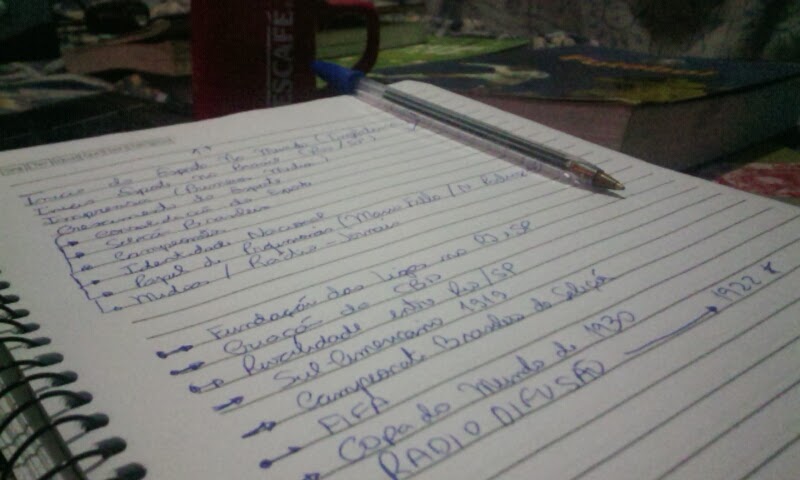 NESCAFÉ
Inicio do Esporte No Mundo (Inglaterra)
Inicio Esporte no Brasil (Rio/SP)
Imprensa (Primeiras Midias)
Crescimento do Esporte
Consolidação do Esporte
Seleção Brasileira
Campeonatos
Identidade Nacional
Papel do (Mario Filho / N. Rodrigues)
Midias / Radios - Jornais
Fundação das Ligas no RJ e SP
Criação do CBD
Rivalidade entre Rio/SP
Sul-Americano 1919
Campeonato Brasileiro de Seleçõ
FIFA
Copa do Mundo de 1930
RADIO DIFUSÃO → 1922